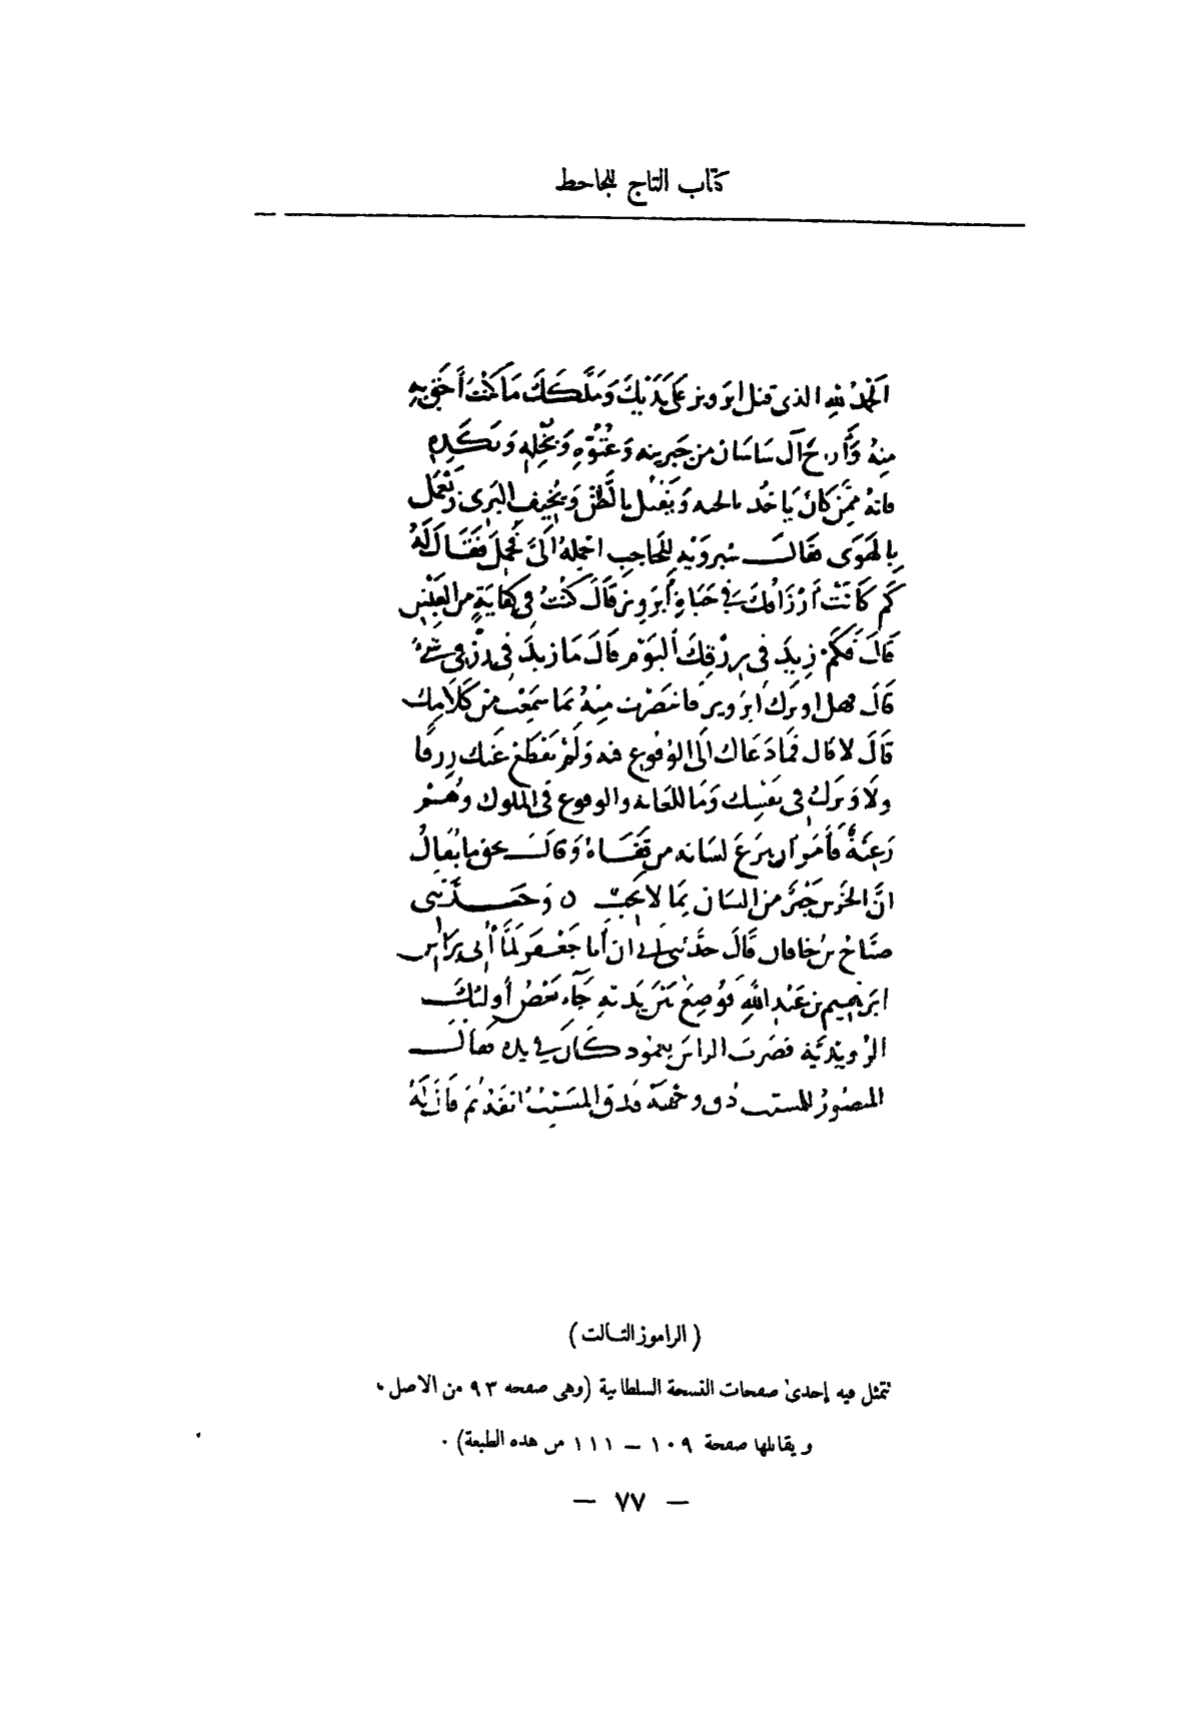 كتاب التاج للجاحظ
اَلْحَمْدُ لله الذى قتل ابرويز عَلَى يَدَيْكَ وَمَلَّكَكَ مَا كُنْتَ أَحَقَّ بِهِ
مِنهُ وَأَراح آل سَاسَان من جَبريته وَعُتُوِّهِ وَبُخْلِهِ وَنَكَدِهِ
فانهُ مِمَّنْ كان يَاخُذ بالحبه وَيَقتل بالظَّنّ وَيُخِيف البَرِى وَيَعْمَل
بِالهَوَى فقالـــ شيرويه لِلحَاجِب احْمِلهُ الَىَّ فَحُمِلَ فَقَالَ لَهُ
كَم كَانَتْ أَرْزَاقُكَ فى حَيَاةِ أَبرَوِيز قَالَ كُنْتُ فِى كِفَايَةٍ من العَيْشِ
قَالَ فَكَمْ زِيدَ فِى رِزْقِكَ اليَوْم قَالَ مَا زيدَ فى رِزْقِى شَىْءٌ
قَالَ فهل اوترك ابرَويز فانتَصَرت مِنهُ بمَا سَمِعْت مِنْ كَلَامِك
قَالَ لا قال فَمَا دَعَاك الَى الوقُوع فيه وَلَمْ يَقْطَعْ عَنك رِزقًا
ولَا وَتَرك فى نفسِك وَمَا للعَامه والوقوع فى الملوك وَهُـمْ
رَعِيّةٌ فأَمَرَ ان يُنزَعَ لسَانه من قَفَـاهُ وَقالَــ بحق ما يُقالُ
انَّ الخَرَس خَيْرٌ من البيَان بِمَا لا يَجِبُ ه وَحَـدَّثَنِى
صَبَّاحُ بنُ خاقان قَالَ حَدَّثنى ابى ان أَبا جَعْـفَر لَمَّا أُتِى بِرَاس
ابرَاهِيم بن عَبْدِ اللَّهِ فوُضِعَ بَيْن يَدَيْهِ جَآءَ بَعضُ أُولئكَ
الرَّوِينديّة فضَرَب الراسَ بعَمُود كَانَ فى يده فقالَــ
المنصُورُ للمسيّب دُق وَجْهَهُ فدق المُسَيّبُ انفَهُ ثمَ قَالَ لَهُ
( الراموز الثـالث )
تتمثل فيه إحدى صفحات النسخة السلطانية (وهى صفحه ٩٣ من الاصل ،
ويقابلها صفحة ١٠٩ — ١١١ من هذه الطبعة) .
— ٧٧ —